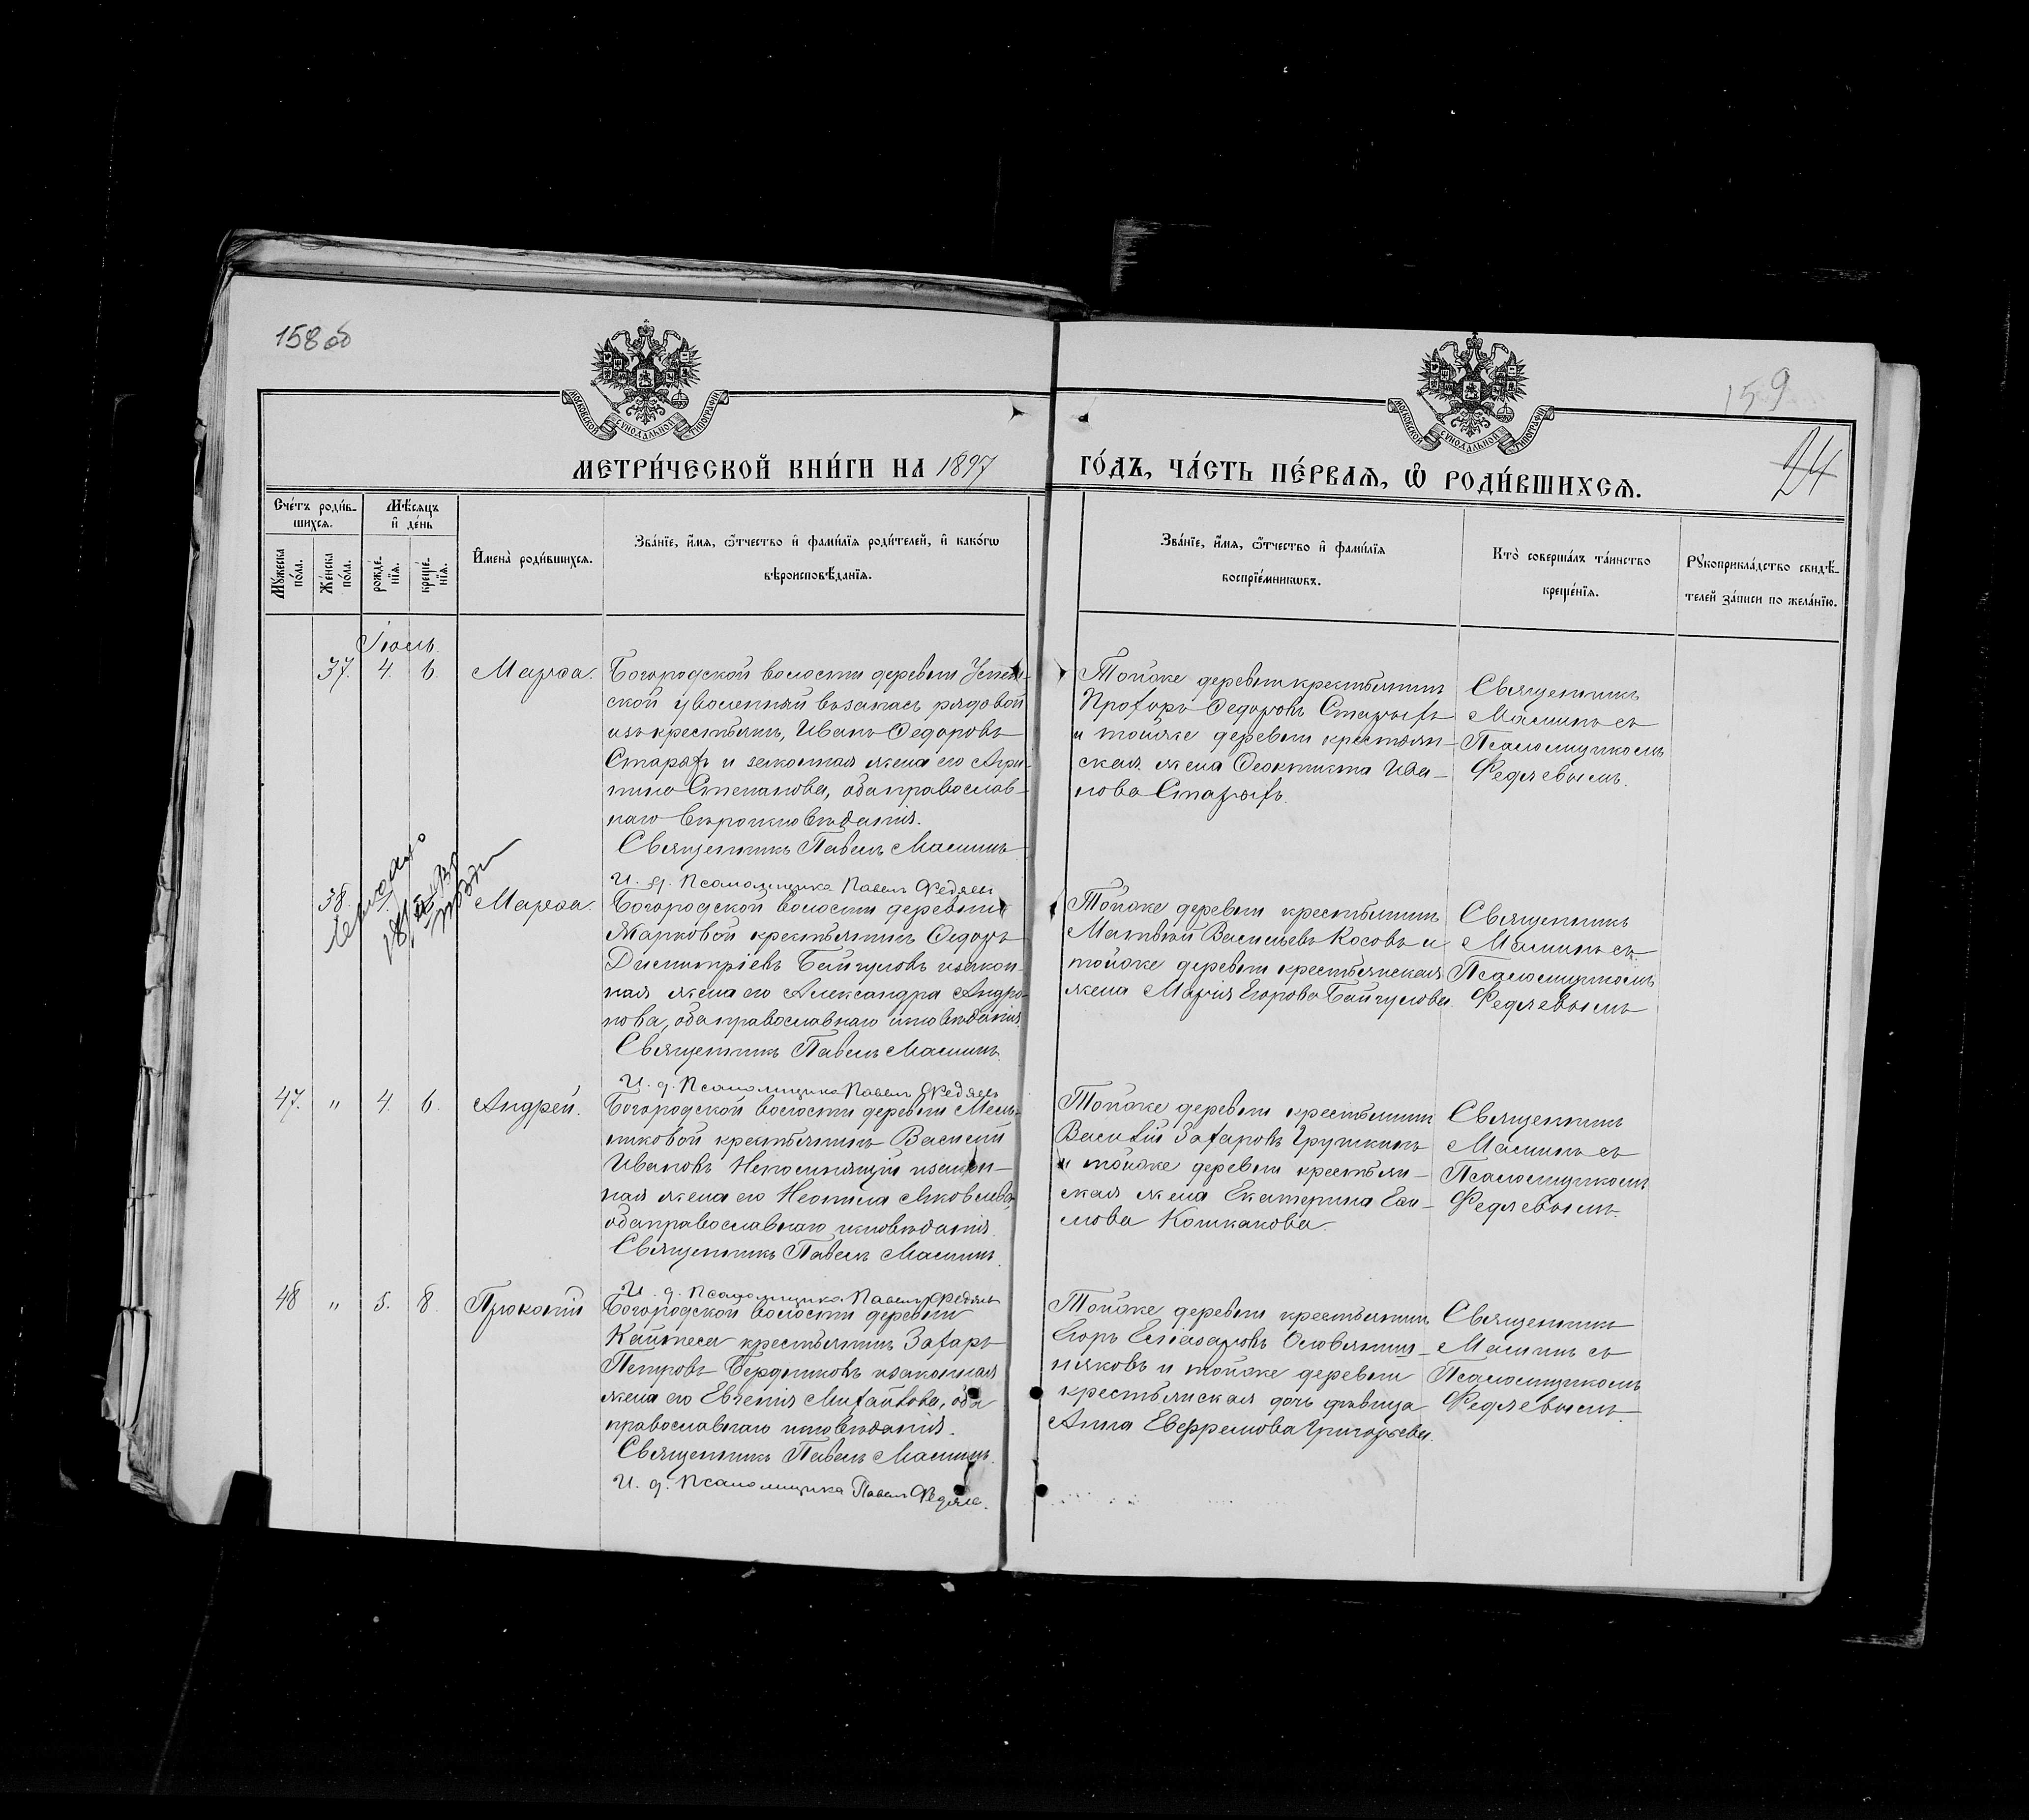 158 об
159
24
МОСКОВСКОЙ СѴНОДАЛЬНОЙ ТИПОГРАФІИ
МОСКОВСКОЙ СѴНОДАЛЬНОЙ ТИПОГРАФІИ
МЕТРИ́ЧЕСКОЙ КНИ́ГИ НА 1897
ГО́ДЪ, ЧА́СТЬ ПЕ́РВАЯ, Ѡ РОДИ́ВШИХСЯ.
Сче́тъ роди́в-
шихся.
Мꙋжеска
по́ла.
Же́нска
по́ла.
Мѣ́сяцъ
и҆ де́нь
рожде-
нїя.
креще́-
нїя.
И҆мена̀ роди́вшихся.
Зва́нїе, и҆́мя, ѻ҆́тчество и҆ фами́лїя роди́телей, и҆ како́гѡ
вѣроисповѣ́данїя.
Зва́нїе, и҆́мя, ѻ҆́тчество и҆ фами́лїя
воспрїе́мникѡвъ.
Кто̀ соверша́лъ та́инство
креще́нїя.
Рꙋкоприкла́дство свидѣ́-
телей за́писи по жела́нїю.
Іюль.
37. 4. 6. Марѳа.
Богородской волости деревни Успен-
ской уволенный въ запасъ рядовой
изъ крестьянъ, Иванъ Ѳедоровъ
Старыхъ и законная жена его Агри-
пина Степанова, оба православ-
наго вѣроисповѣданія.
Священникъ Павелъ Маминъ
И. д. Псаломщика Павелъ Федяевъ
Тойже деревни крестьянинъ
Прохоръ Ѳедоровъ Старыхъ
и тойже деревни крестьян-
ская жена Ѳеоктиста Ива-
нова Старыхъ.
Священникъ
Маминъ съ
Псаломщикомъ
Федяевымъ.
38. Марѳа.
Богородской волости деревни
Жарковой крестьянинъ Ѳедоръ
Димитріевъ Байгуловъ и закон-
ная жена его Александра Андро-
нова, оба православнаго исповѣданія.
Священникъ Павелъ Маминъ.
И. д. Псаломщика Павелъ Федяевъ
Тойже деревни крестьянинъ
Матвѣй Васильевъ Косовъ и
тойже деревни крестьянская
жена Марія Егорова Байгулова.
Священникъ
Маминъ съ
Псаломщикомъ
Федяевымъ
47. " 4. 6. Андрей.
Богородской волости деревни Мель-
никовой крестьянинъ Василій
Ивановъ Непомнящій и закон-
ная жена его Неонила Яковлева,
оба православнаго исповѣданія.
Священникъ Павелъ Маминъ.
И. д. Псаломщика Павелъ Федяевъ
Тойже деревни крестьянинъ
Василій Захаровъ Грушкинъ
и тойже деревни крестьян-
ская жена Екатерина
Кошкакова.
Священникъ
Маминъ съ
Псаломщикомъ
Федяевымъ.
48 " 5. 8. Прокопій
Богородской волости деревни
крестьянинъ Захаръ
Петровъ Бердниковъ и законная
жена его Евгенія Михайлова, оба
православнаго исповѣданія.
Священникъ Павелъ Маминъ.
И. д. Псаломщика Павелъ Федяевъ.
Тойже деревни крестьянинъ
Егоръ Еліазаровъ
и тойже деревни
крестьянская дочь дѣвица
Анна Евфремова Григорьева.
Священникъ
Маминъ съ
Псаломщикомъ
Федяевымъ.